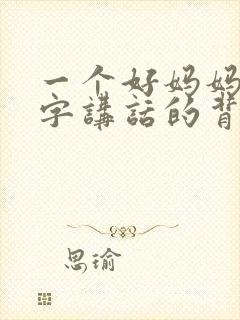 一个好妈妈
字講話的背
思瑜